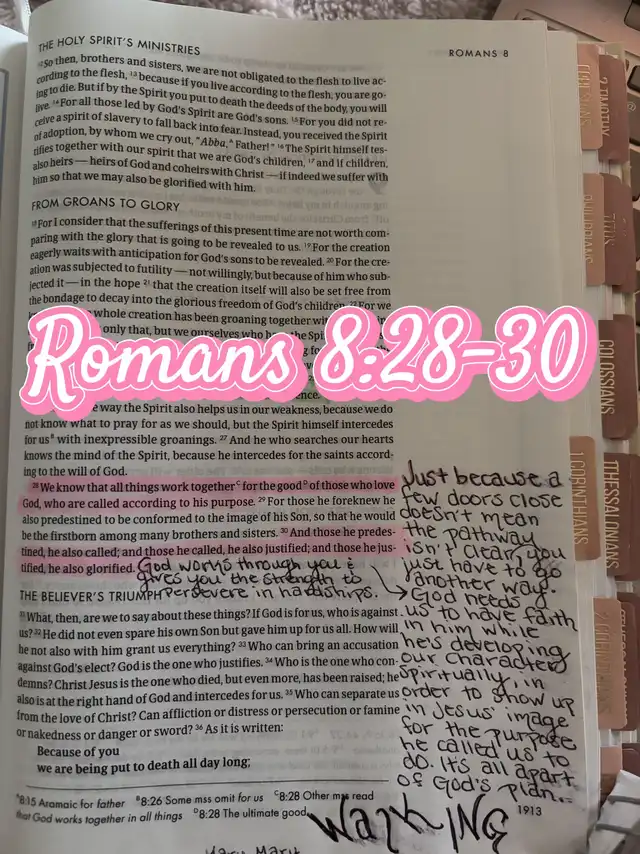 THE HOLY SPIRIT'S MINISTRIES
ROMANS 8
12 So then, brothers and sisters, we are not obligated to the flesh to live ac-
cording to the flesh, 13 because if you live according to the flesh, you are go-
ing to die. But if by the Spirit you put to death the deeds of the body, you will
live. 14 For all those led by God's Spirit are God's sons. 15 For you did not re-
ceive a spirit of slavery to fall back into fear. Instead, you received the Spirit
of adoption, by whom we cry out, "Abba,A Father!" 16 The Spirit himself tes-
tifies together with our spirit that we are God's children, 17 and if children,
also heirs — heirs of God and coheirs with Christ — if indeed we suffer with
him so that we may also be glorified with him.
FROM GROANS TO GLORY
18 For I consider that the sufferings of this present time are not worth com-
paring with the glory that is going to be revealed to us. 19 For the creation
eagerly waits with anticipation for God's sons to be revealed. 20 For the cre-
ation was subjected to futility — not willingly, but because of him who sub-
jected it — in the hope 21 that the creation itself will also be set free from
the bondage to decay into the glorious freedom of God's children. 22 For we
whole creation has been groaning together
only that, but we ourselves who
Romans 8:28-30
way the Spirit also helps us in our weakness, because we do
not know what to pray for as we should, but the Spirit himself intercedes
for usB with inexpressible groanings. 27 And he who searches our hearts
knows the mind of the Spirit, because he intercedes for the saints accord-
ing to the will of God.
28 We know that all things work togetherC for the goodD of those who love
God, who are called according to his purpose. 29 For those he foreknew he
also predestined to be conformed to the image of his Son, so that he would
be the firstborn among many brothers and sisters. 30 And those he predes-
tined, he also called; and those he called, he also justified; and those he jus-
tified, he also glorified.
God works through you &
gives you the strength to
persevere in hardships.
THE BELIEVER'S TRIUMPH
31 What, then, are we to say about these things? If God is for us, who is against
us? 32 He did not even spare his own Son but gave him up for us all. How will
he not also with him grant us everything? 33 Who can bring an accusation
against God's elect? God is the one who justifies. 34 Who is the one who con-
demns? Christ Jesus is the one who died, but even more, has been raised; he
also is at the right hand of God and intercedes for us. 35 Who can separate us
from the love of Christ? Can affliction or distress or persecution or famine
or nakedness or danger or sword? 36 As it is written:
Because of you
we are being put to death all day long;
Just because a
few doors close
doesn't mean
the pathway
isn't clear, you
just have to go
another way.
God needs
us to have faith
in him while
he's developing
our character
spiritually, in
order to show up
in Jesus' image
for the purpose
he called us to
do. It's all apart
of God's plan.
A 8:15 Aramaic for father B 8:26 Some mss omit for us C 8:28 Other mss read
that God works together in all things D 8:28 The ultimate good
1913
WalkING
2 TIMOTHY
TITUS
PHILIPPIANS
COLOSSIANS
1 CORINTHIANS
THESSALONIANS